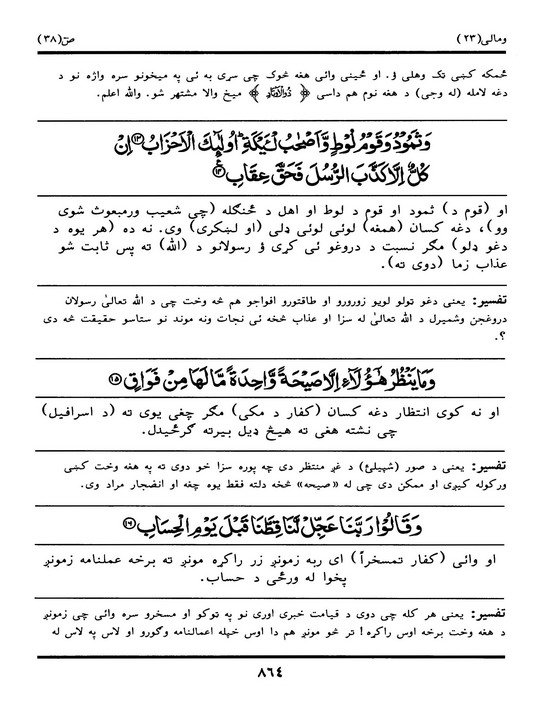 ومالی(۲۳) صۤ(۳۸)
څمکه کښی ټک وهلی ؤ. او ځینی وائی هغه څوک چی سری به ئی په میخونو سره واژه نو د
دغه لامله (له وجی) د هغه نوم هم داسی ﴿ ذُوالْاَوْتَادِ ﴾ میخ والا مشتهر شو. والله اعلم.
وَثَمُوْدُ وَقَوْمُ لُوْطٍ وَّاَصْحٰبُ لْـَٔيْكَةِ ؕ اُولٰٓىِٕكَ الْاَحْزَابُ ﴿۱۳﴾ اِنْ
كُلٌّ اِلَّا كَذَّبَ الرُّسُلَ فَحَقَّ عِقَابِ ﴿۱۴﴾
او (قوم د) ثمود او قوم د لوط او اهل د ځنګله (چی شعیب ورمبعوث شوی
وو)، دغه کسان (همغه) لوئی لوئی ډلی (او لښکری) وی. نه ده (هر یوه د
دغو ډلو) مګر نسبت د دروغو ئی کړی ؤ رسولانو د (الله) ته پس ثابت شو
عذاب زما (دوی ته).
تفسیر: یعنی دغو ټولو لویو زورورو او طاقتورو افواجو هم څه وخت چی د الله تعالیٰ رسولان
دروغجن وشمیرل د الله تعالیٰ له سزا او عذاب څخه ئی نجات ونه موند نو ستاسو حقیقت څه دی
؟.
وَمَا يَنْظُرُ هٰٓؤُلَآءِ اِلَّا صَيْحَةً وَّاحِدَةً مَّا لَهَا مِنْ فَوَاقٍ ﴿۱۵﴾
او نه کوی انتظار دغه کسان (کفار د مکی) مګر چغی یوی ته (د اسرافیل)
چی نشته هغی ته هیڅ ډیل بیرته ګرځیدل.
تفسیر: یعنی د صور (شپیلئ) د غږ منتظر دی چه پوره سزا خو دوی ته په هغه وخت کښی
ورکوله کیږی او ممکن دی چی له «صیحه» څخه دلته فقط یوه چغه او انضجار مراد وی.
وَقَالُوْا رَبَّنَا عَجِّلْ لَّنَا قِطَّنَا قَبْلَ يَوْمِ الْحِسَابِ ﴿۱۶﴾
او وائی (کفار تمسخراً) ای ربه زمونږ زر راکړه مونږ ته برخه عملنامه زمونږ
پخوا له ورځی د حساب.
تفسیر: یعنی هر کله چی دوی د قیامت خبری اوری نو په ټوکو او مسخرو سره وائی چی زمونږ
د هغه وخت برخه اوس راکړه! تر څو مونږ هم دا اوس خپله اعمالنامه وګورو او لاس په لاس له
٨٦٤